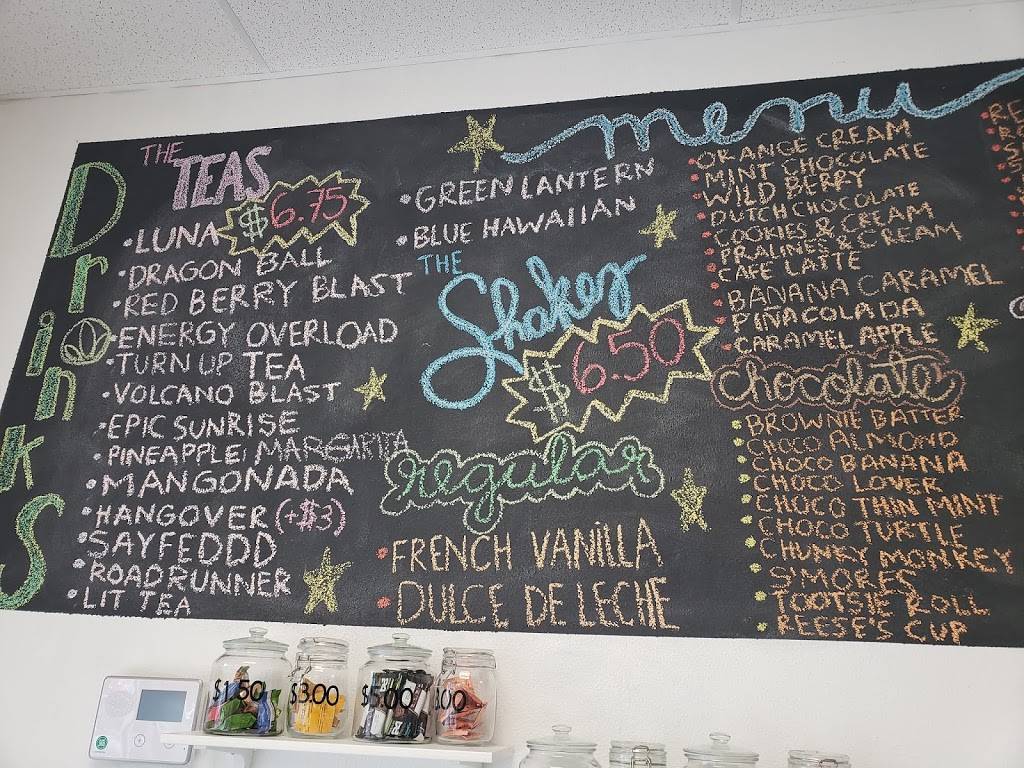 Drinks
THE
TEAS
$6.75
LUNA
DRAGON BALL
RED BERRY BLAST
ENERGY OVERLOAD
TURN UP TEA
VOLCANO BLAST
EPIC SUNRISE
PINEAPPLE MARGARITA
MANGONADA
HANGOVER (+$3)
SAYFEDDD
ROADRUNNER
LIT TEA
menu
GREEN LANTERN
BLUE HAWAIIAN
THE
Shakes
$6.50
regular
FRENCH VANILLA
DULCE DE LECHE
ORANGE CREAM
MINT CHOCOLATE
WILD BERRY
DUTCH CHOCOLATE
COOKIES & CREAM
PRALINES & CREAM
CAFE LATTE
BANANA CARAMEL
PIÑA COLADA
CARAMEL APPLE
chocolate
BROWNIE BATTER
CHOCO ALMOND
CHOCO BANANA
CHOCO LOVER
CHOCO THIN MINT
CHOCO TURTLE
CHUNKY MONKEY
S'MORES
TOOTSIE ROLL
REESE'S CUP
RE
$1.50
$3.00
$5.00
.00